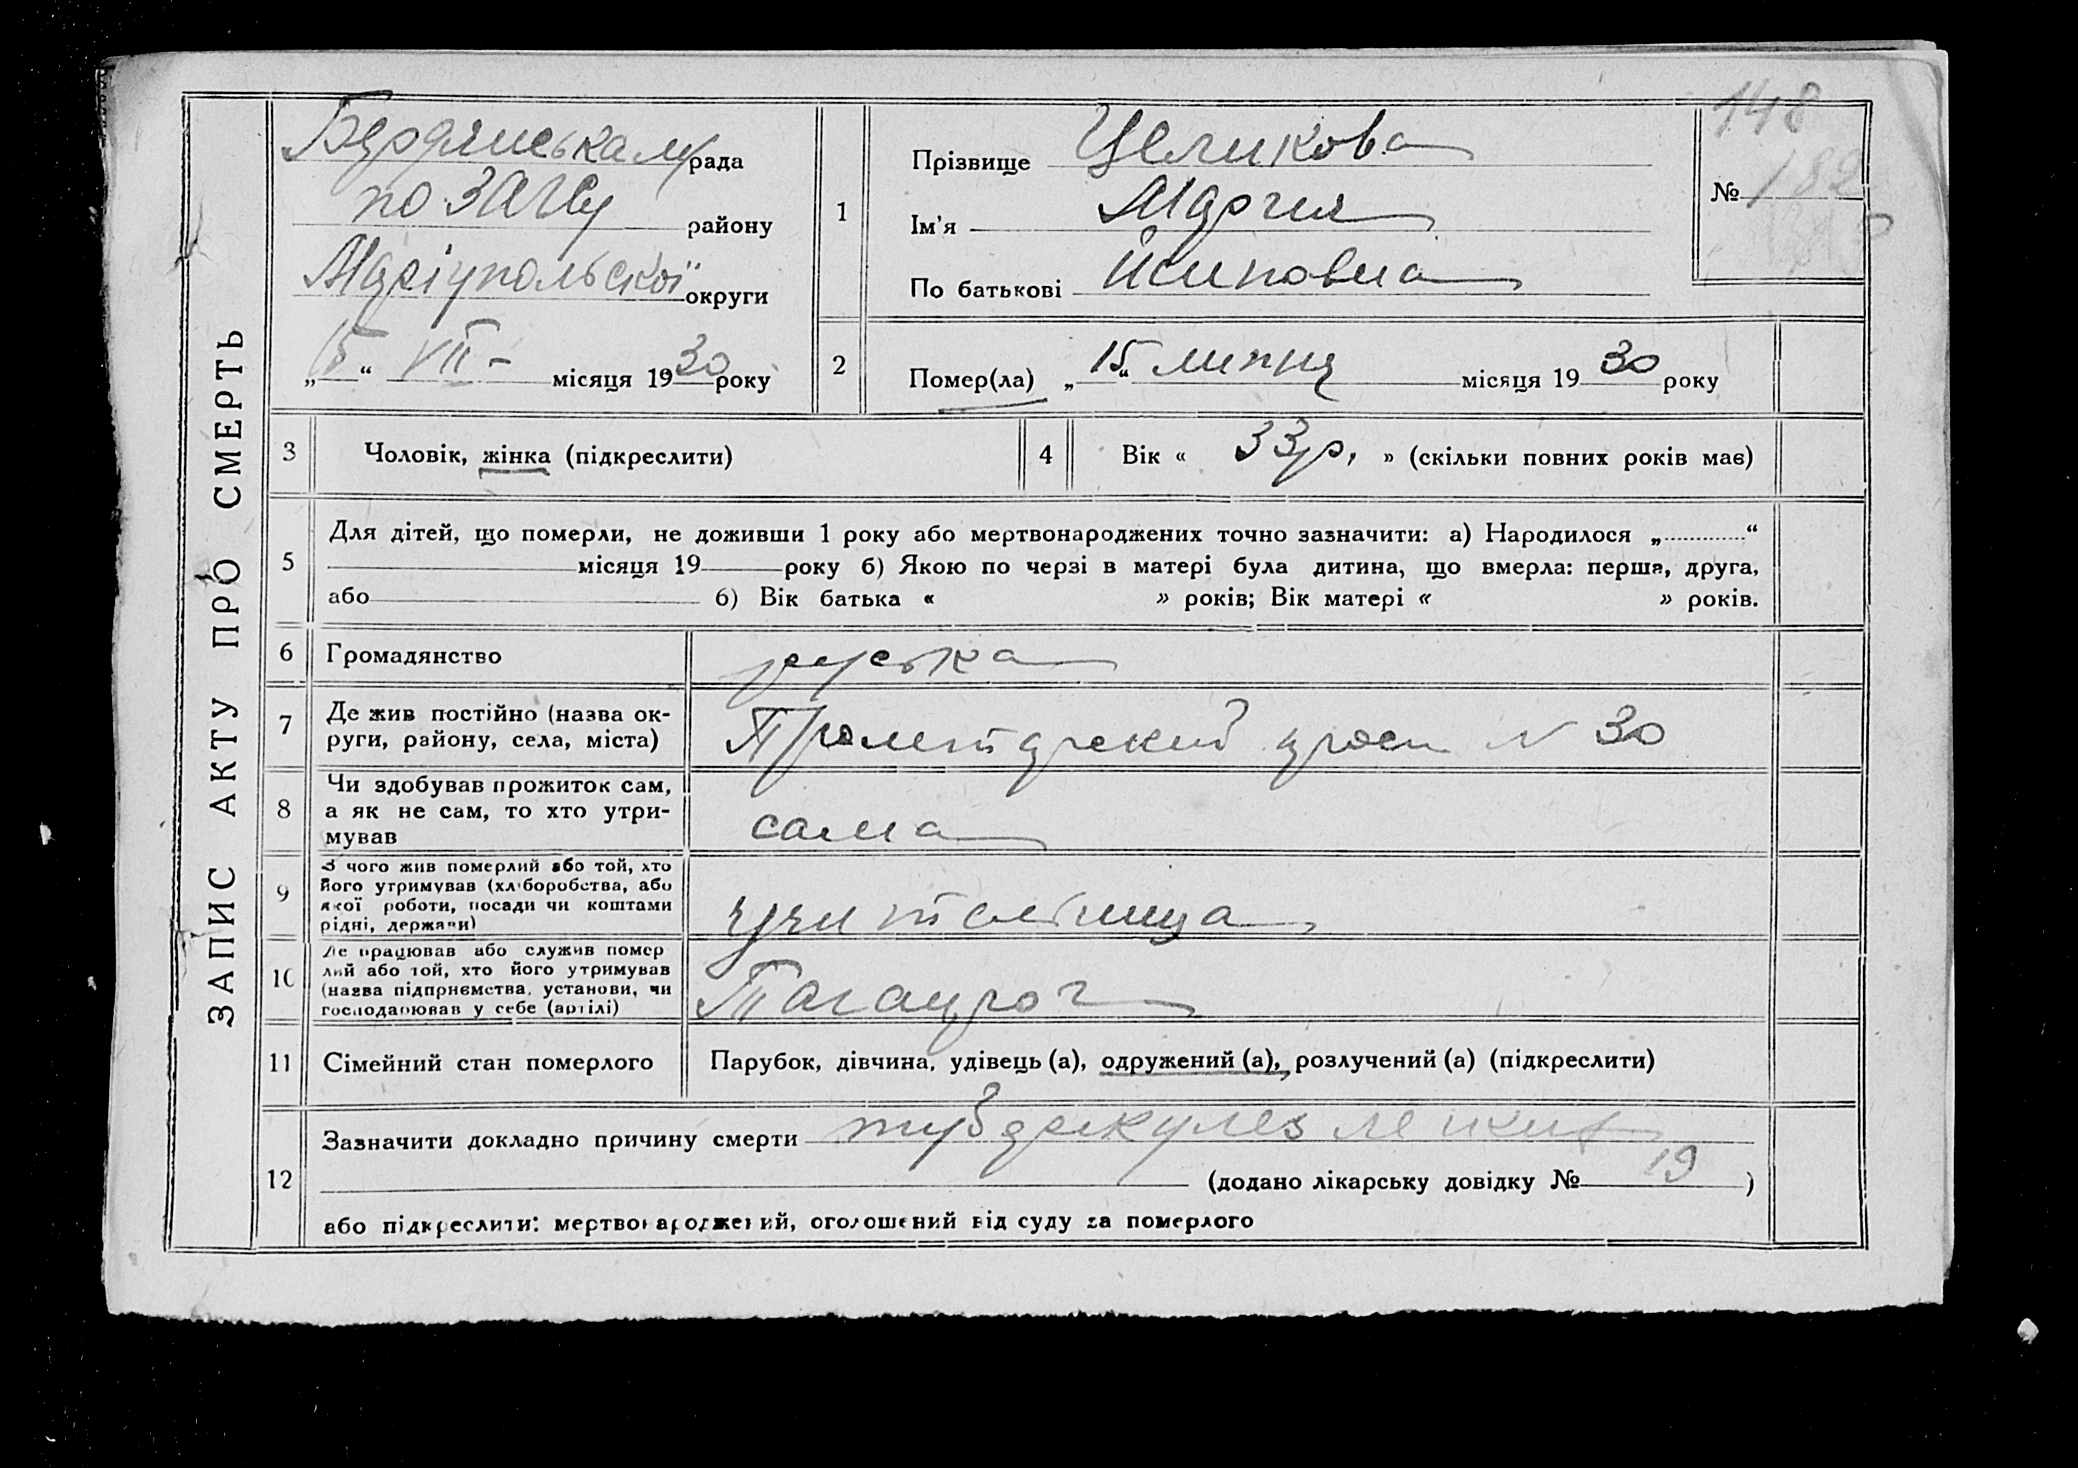 ЗАПИС АКТУ ПРО СМЕРТЬ
Бердянська м/рада
по ЗАГСу району
Маріупольської округи
„15“ VII - місяця 1930 року
1
Прізвище Целикова
Ім'я Мария
По батькові Йсиповна
148
№ 182
2
Помер(ла) „15“ липня місяця 1930 року
3 Чоловік, жінка (підкреслити)
4 Вік « 33 р. » (скільки повних років має)
5
Для дітей, що померли, не доживши 1 року або мертвонароджених точно зазначити: а) Народилося „ “
місяця 19 року б) Якою по черзі в матері була дитина, що вмерла: перша, друга,
або б) Вік батька « » років; Вік матері « » років.
6 Громадянство руська
7 Де жив постійно (назва ок-
руги, району, села, міста) Пролетарский просп N 30
8 Чи здобував прожиток сам,
а як не сам, то хто утри-
мував сама
9 З чого жив померлий або той, хто
його утримував (хліборобства, або
якої роботи, посади чи коштами
рідні, держави) учительница
10 Де працював або служив помер
лий або той, хто його утримував
(назва підприємства, установи, чи
господарював у себе (артілі) Таганрог
11 Сімейний стан померлого Парубок, дівчина, удівець (а), одружений (а), розлучений (а) (підкреслити)
12
Зазначити докладно причину смерти туберкулез легких
(додано лікарську довідку № 19 )
або підкреслити: мертвонароджений, оголошений від суду за померлого